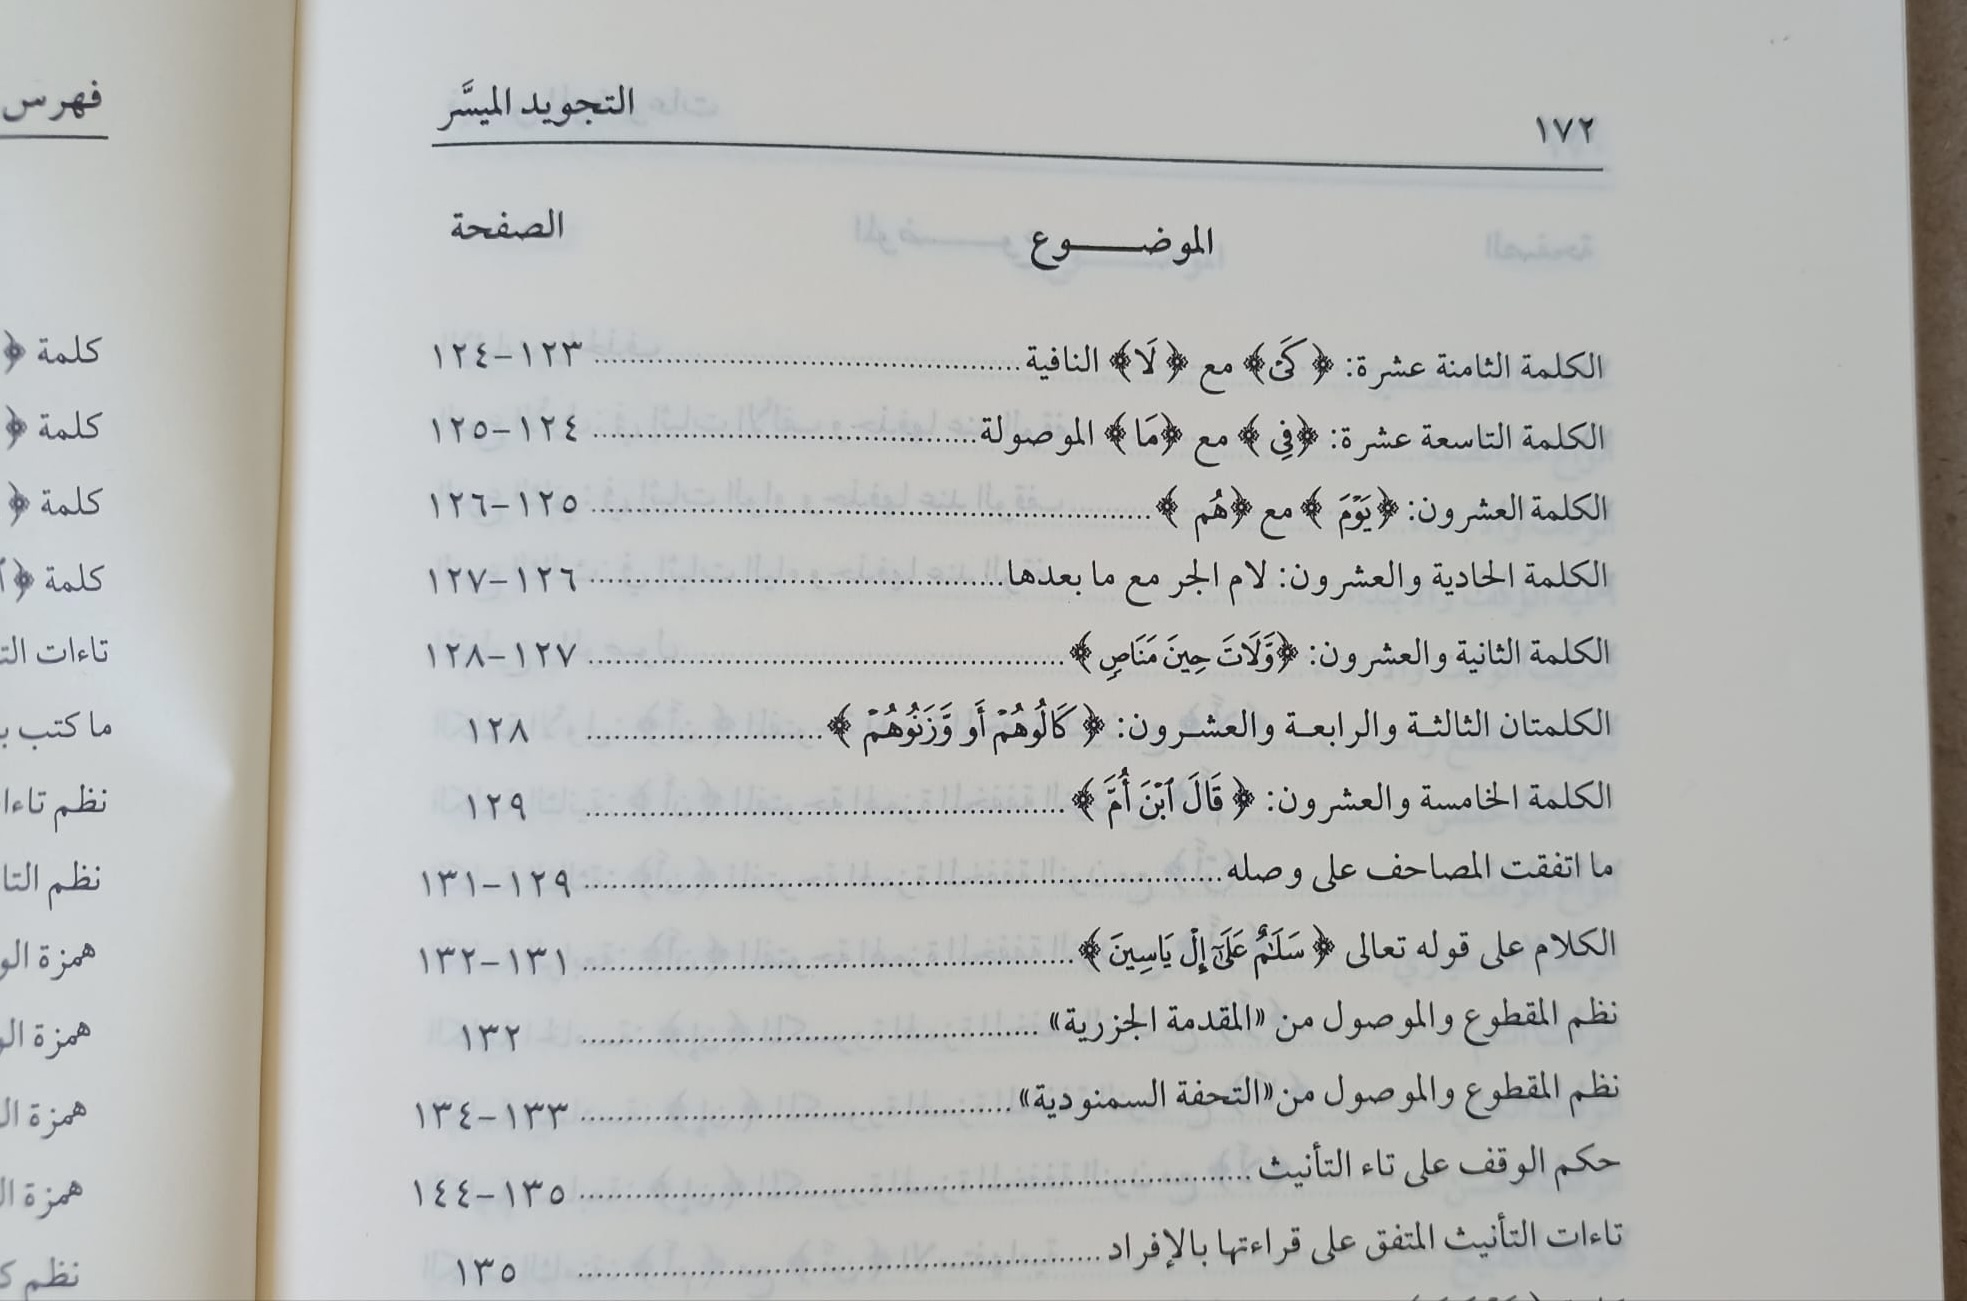 ١٧٢ التجويد الميسَّر
الموضـــــوع الصفحة
الكلمة الثامنة عشرة: ﴿كَىْ﴾ مع ﴿لَا﴾ النافية ........ ١٢٣-١٢٤
الكلمة التاسعة عشرة: ﴿فِى﴾ مع ﴿مَا﴾ الموصولة ........ ١٢٤-١٢٥
الكلمة العشرون: ﴿يَوْمَ﴾ مع ﴿هُم﴾ ........ ١٢٥-١٢٦
الكلمة الحادية والعشرون: لام الجر مع ما بعدها ........ ١٢٦-١٢٧
الكلمة الثانية والعشرون: ﴿وَّلَاتَ حِينَ مَنَاصٍ﴾ ........ ١٢٧-١٢٨
الكلمتان الثالثـة والرابعـة والعشـرون: ﴿كَالُوهُمْ أَو وَّزَنُوهُمْ﴾ ........ ١٢٨
الكلمة الخامسة والعشرون: ﴿قَالَ ٱبْنَ أُمَّ﴾ ........ ١٢٩
ما اتفقت المصاحف على وصله ........ ١٢٩-١٣١
الكلام على قوله تعالى ﴿سَلَٰمٌ عَلَىٰٓ إِلْ يَاسِينَ﴾ ........ ١٣١-١٣٢
نظم المقطوع والموصول من «المقدمة الجزرية» ........ ١٣٢
نظم المقطوع والموصول من «التحفة السمنودية» ........ ١٣٣-١٣٤
حكم الوقف على تاء التأنيث ........ ١٣٥-١٤٤
تاءات التأنيث المتفق على قراءتها بالإفراد ........ ١٣٥
فهرس
كلمة
كلمة
كلمة
كلمة
تاءات
ما كتب
نظم
نظم
همزة
همزة
همزة
همزة
نظم